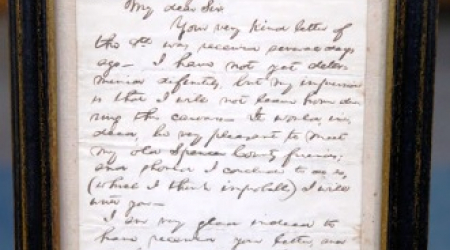 My dear Sir
Your very kind letter of
the was received several days
ago — I have not yet deter
mined definitely, but my impression
is that I will not leave home du
ring the canvass — It would, in
deed, be very pleasant to meet
my old Spencer County friends;
and should I conclude to do so,
(which I think improbable) I will
write you —
I am very glad indeed to
have received your letter, and